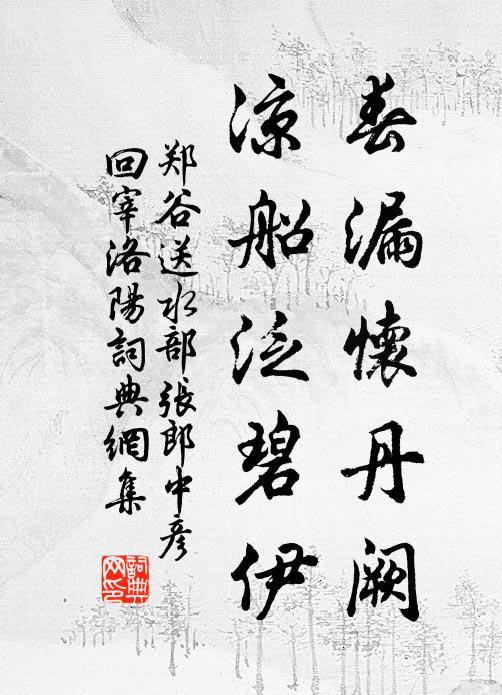 春漏懷丹闕
涼船泛碧伊
郑谷送水部張郎中彦
回宰洛陽詞典網集
詞典
网印